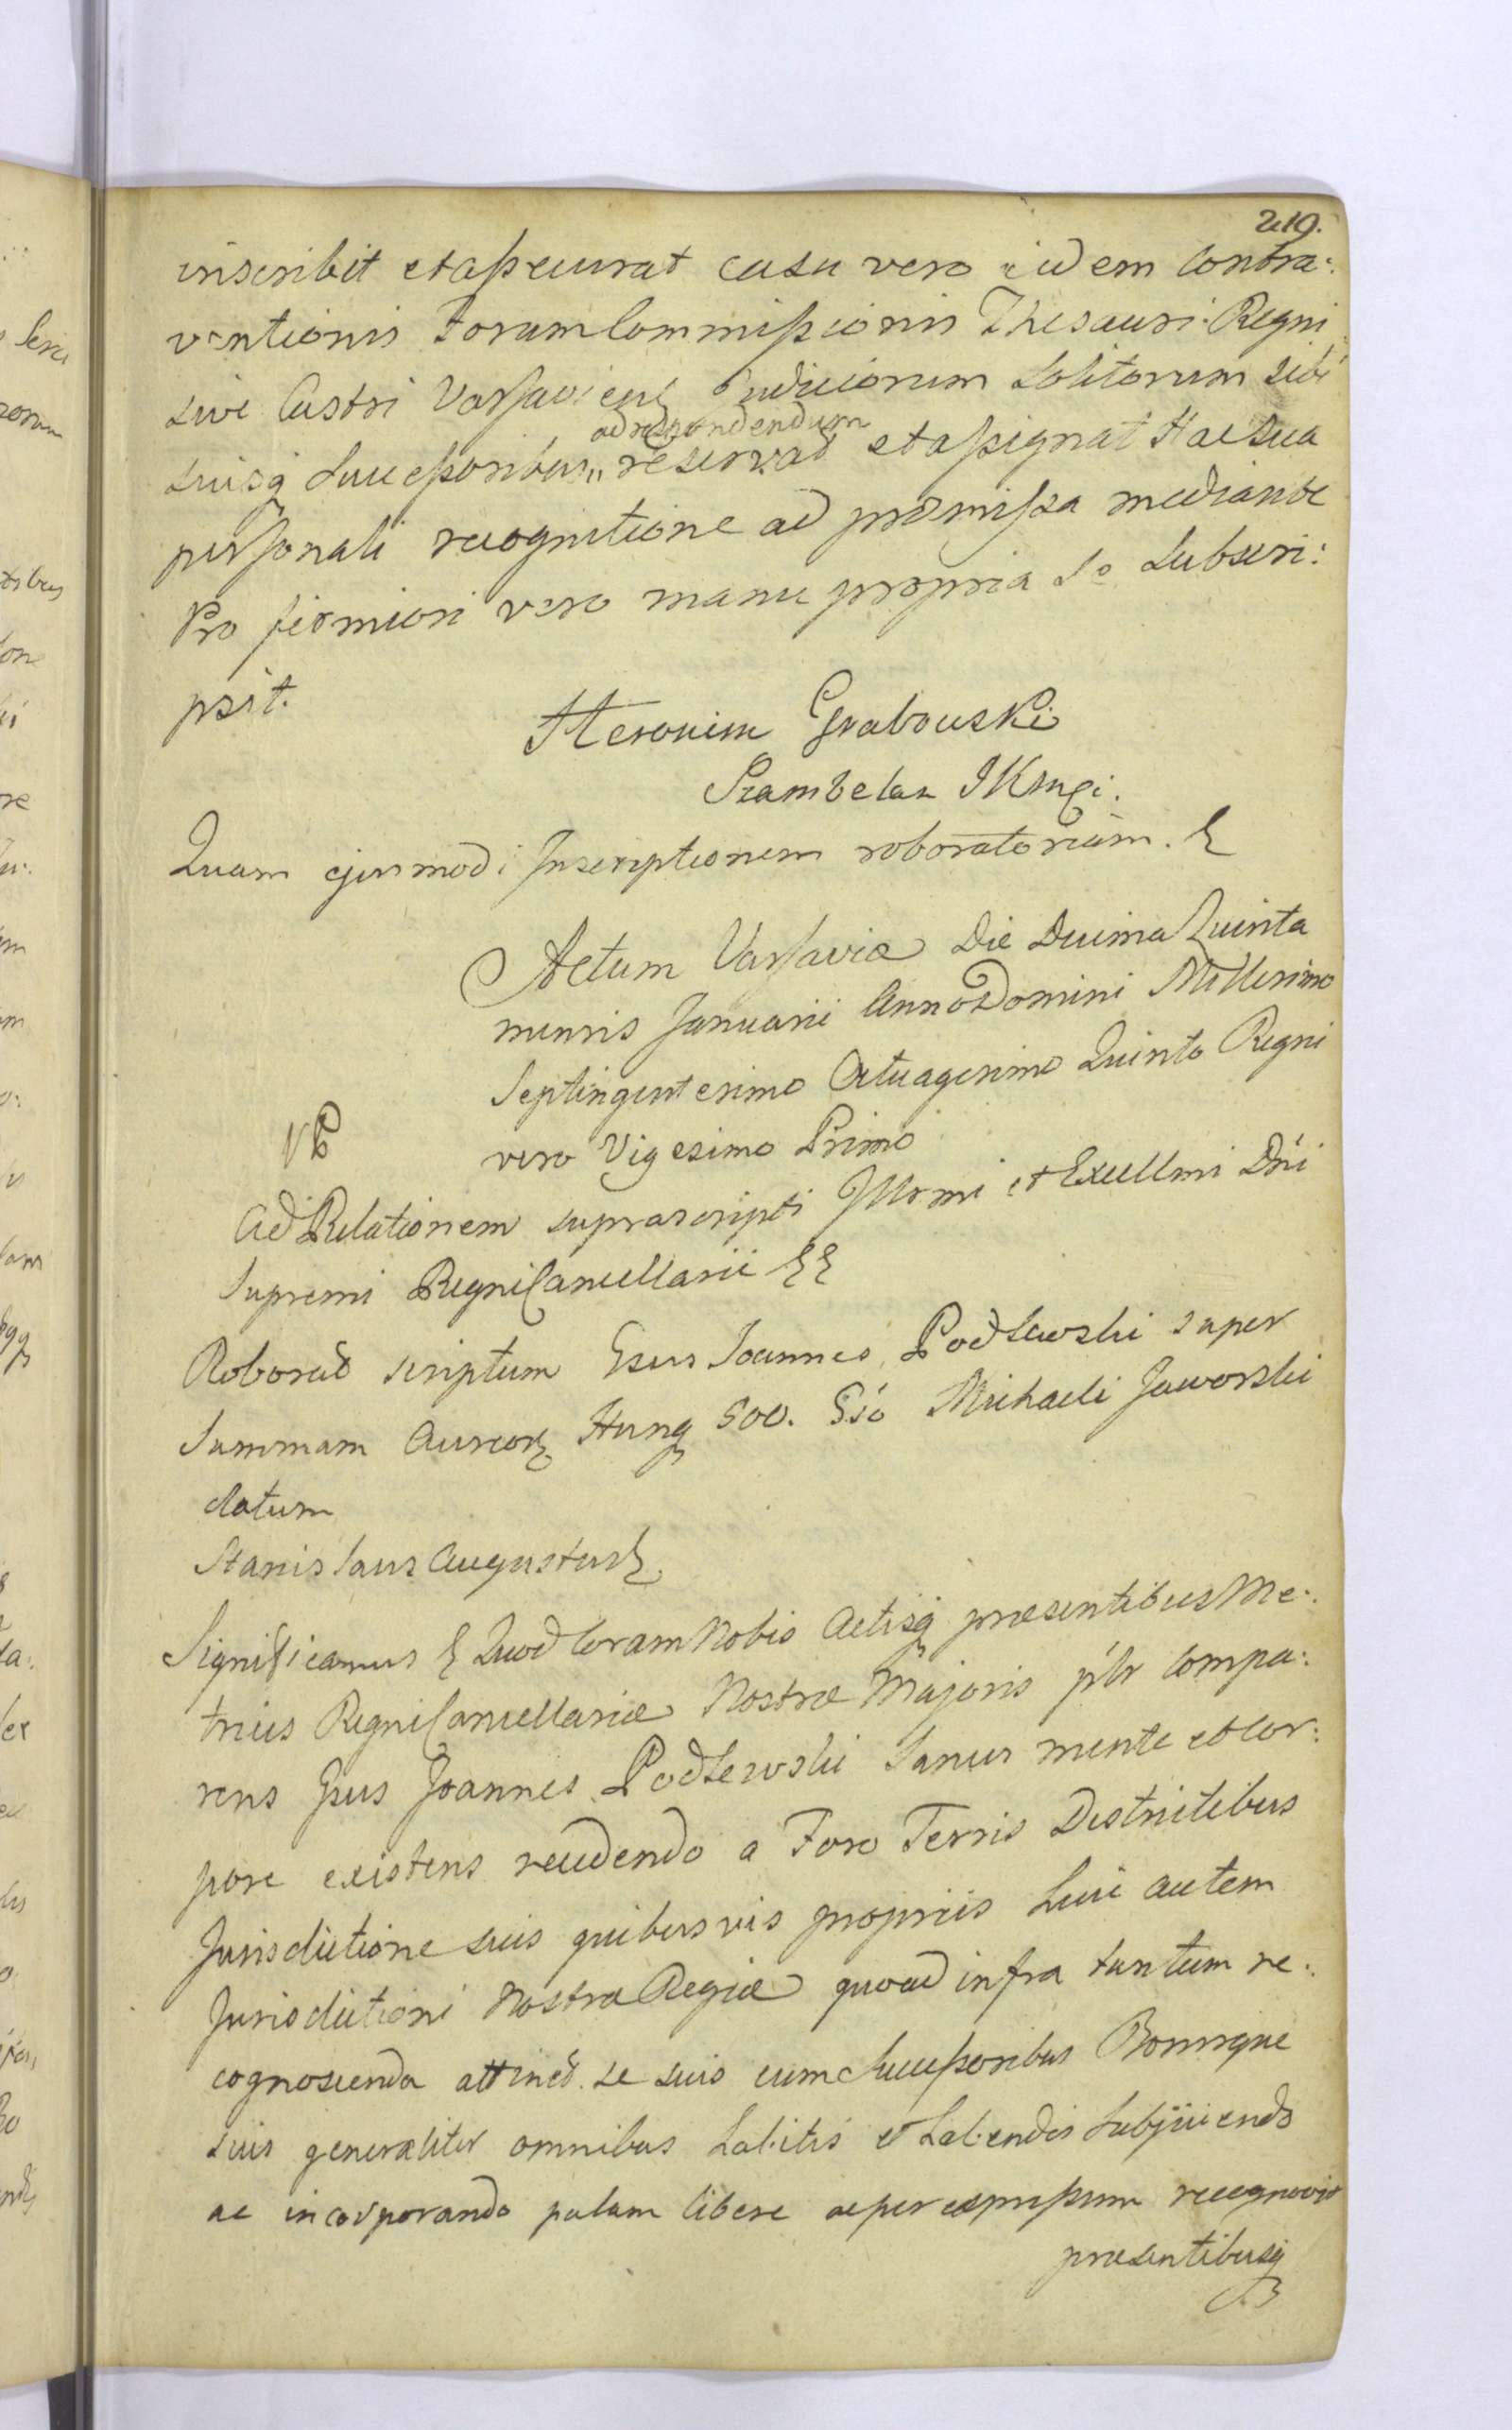 219.
inscribit et assecurat casu vero in idem Contra:
ventionis Forum Commissionis Thesauri Regni
sive Castri Varsavien̄ Judiciorum Solitorum sibi
suisq̨ Successoribus„ adrespondendum reservat et assignat Hac sua
personali recognitione ad præmissa mediante
Pro firmiori vero manu propria se Subscri:
psit.
Heronim Grabowski
Szambelan JKMci.
Quam ejusmodi Inscriptionem roboratoriam. &
Actum Varsaviæ Die Decima Quinta
mensis Januarii Anno Domini Millesimo
Septingentesimo Octuagesimo Quinto Regni
vero Vigesimo Primo
Ad Relationem suprascripti Illrmi et Excellmi Dńi
Supremi Regni Cancellarii &&
Roborat scriptum Gsus Joannes Podlewski super
Summam Aureor̨ Hung̨ 500. Gsó Michaeli Jaworski
datum
Stanislaus Augustus &.
Significamus & Quod Coram Nobis Actisq̨ præsentibus Me:
trices Regni Cancellariæ Nostræ Majoris p̄lr Compa:
rens Gsus Joannes Podlewski Sanus mente et Cor:
pore existens recedendo a Foro Terris Districtibus
Jurisdictione suis quibusvis propriis huic autem
Jurisdictioni Nostræ Regiæ quoad infra tantum re:
cognoscenda attinet se suis cum Successoribus Bonisque
suis generaliter omnibus habitis et habendis Subjiciendo
ac incorporando palam libere ac per expressum recognovit
præsentibusq̨